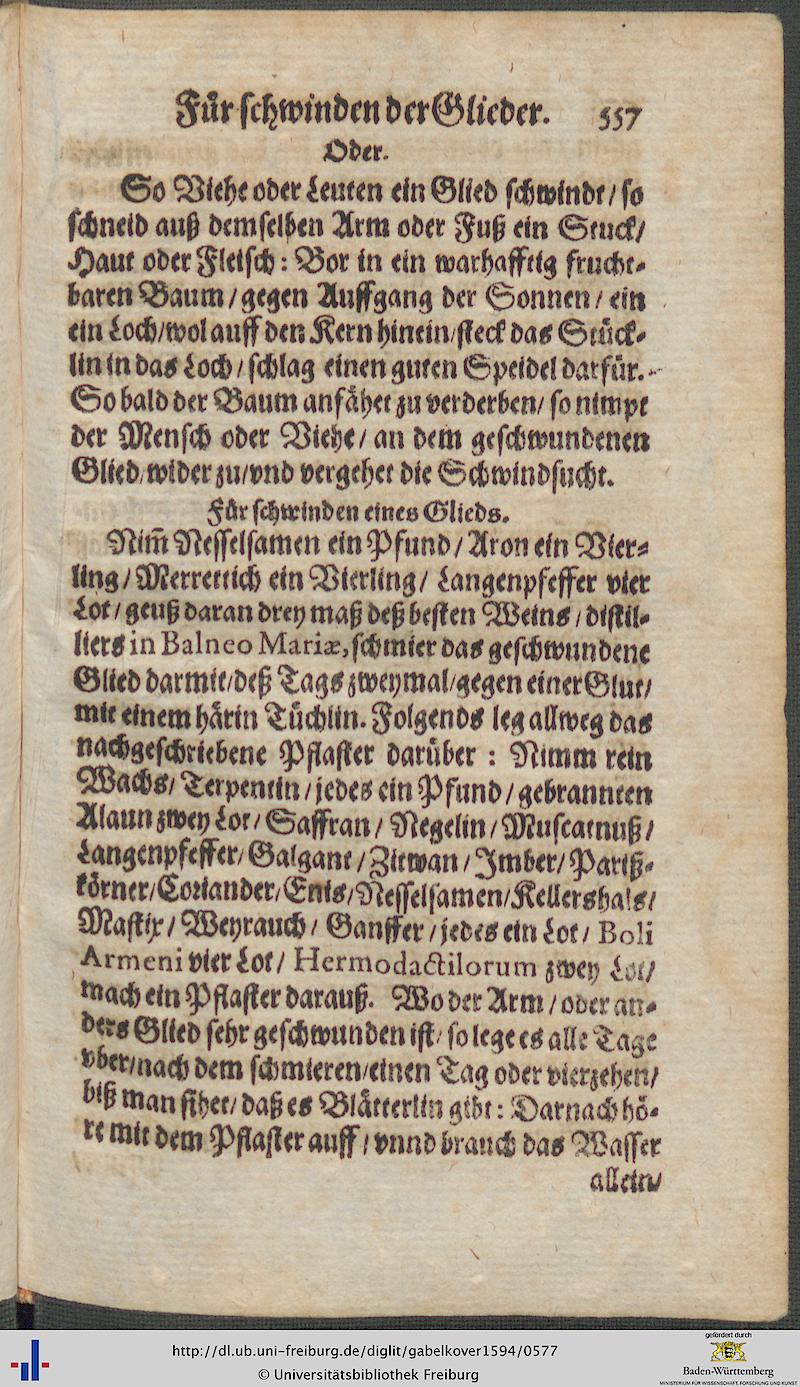 Für schwinden der Glieder. 557
Oder.
So Viehe oder Leuten ein Glied schwindt / so
schneid auß demselben Arm oder Fuß ein Stuck /
Haut oder Fleisch : Bor in ein warhafftig frucht-
baren Baum / gegen Auffgang der Sonnen / ein
ein Loch / wol auff den Kern hinein / steck das Stück-
lin in das Loch / schlag einen guten Speidel darfür.
So bald der Baum anfähet zu verderben / so nimpt
der Mensch oder Viehe / an dem geschwundenen
Glied / wider zu / vnd vergehet die Schwindsucht.
Für schwinden eines Glieds.
Nim̃ Nesselsamen ein Pfund / Aron ein Vier-
ling / Merrettich ein Vierling / Langenpfeffer vier
Lot / geuß daran drey maß deß besten Weins / distil-
liers in Balneo Mariæ, schmier das geschwundene
Glied darmit / deß Tags zweymal / gegen einer Glut /
mit einem härin Tüchlin. Folgends leg allweg das
nachgeschriebene Pflaster darüber : Nimm rein
Wachs / Terpentin / jedes ein Pfund / gebrannten
Alaun zwey Lot / Saffran / Negelin / Muscatnuß /
Langenpfeffer / Galgant / Zitwan / Imber / Pariß-
körner / Coriander / Enis / Nesselsamen / Kellershals /
Mastix / Weyrauch / Ganffer / jedes ein Lot / Boli
Armeni vier Lot / Hermodactilorum zwey Lot /
mach ein Pflaster darauß. Wo der Arm / oder an-
ders Glied sehr geschwunden ist / so lege es alle Tage
vber / nach dem schmieren / einen Tag oder vierzehen /
biß man sihet / daß es Blätterlin gibt : Darnach hö-
re mit dem Pflaster auff / vnnd brauch das Wasser
allein /
http://dl.ub.uni-freiburg.de/diglit/gabelkover1594/0577
© Universitätsbibliothek Freiburg
gefördert durch
Baden-Württemberg
MINISTERIUM FÜR WISSENSCHAFT, FORSCHUNG UND KUNST